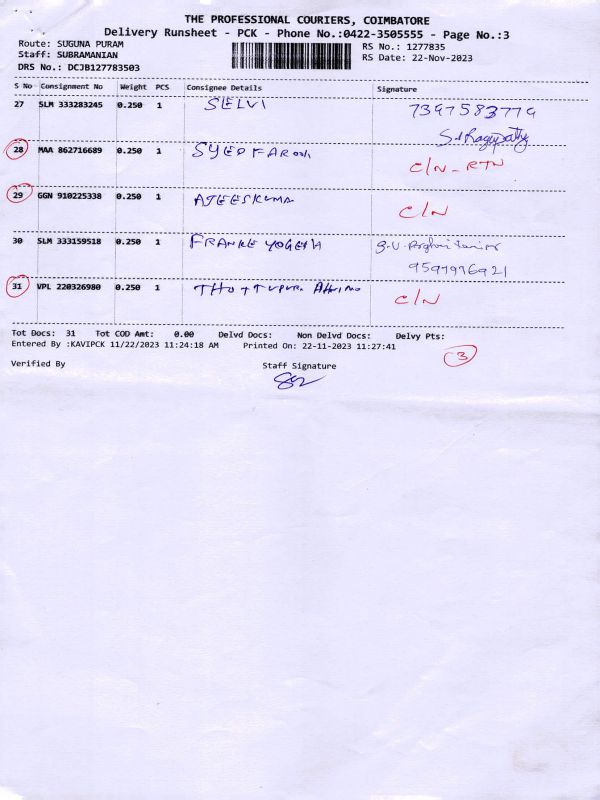 THE PROFESSIONAL COURIERS, COIMBATORE
Delivery Runsheet - PCK - Phone No.:0422-3505555 - Page No.:3
Route: SUGUNA PURAM
Staff: SUBRAMANIAN
DRS No.: DCJB127783503
RS No.: 1277835
RS Date: 22-Nov-2023
S No Consignment No Weight PCS Consignee Details Signature
27 SLM 333283245 0.250 1 SELVI 7397583779
28 MAA 862716689 0.250 1 SYED FAROOK C/N-RTN
29 GGN 910225338 0.250 1 AJEESKUMA C/N
30 SLM 333159518 0.250 1 FRANKE YOGESH
9597976921
31 VPL 220326980 0.250 1 C/N
Tot Docs: 31 Tot COD Amt: 0.00 Delvd Docs: Non Delvd Docs: Delvy Pts:
Entered By :KAVIPCK 11/22/2023 11:24:18 AM Printed On: 22-11-2023 11:27:41
3
Verified By Staff Signature